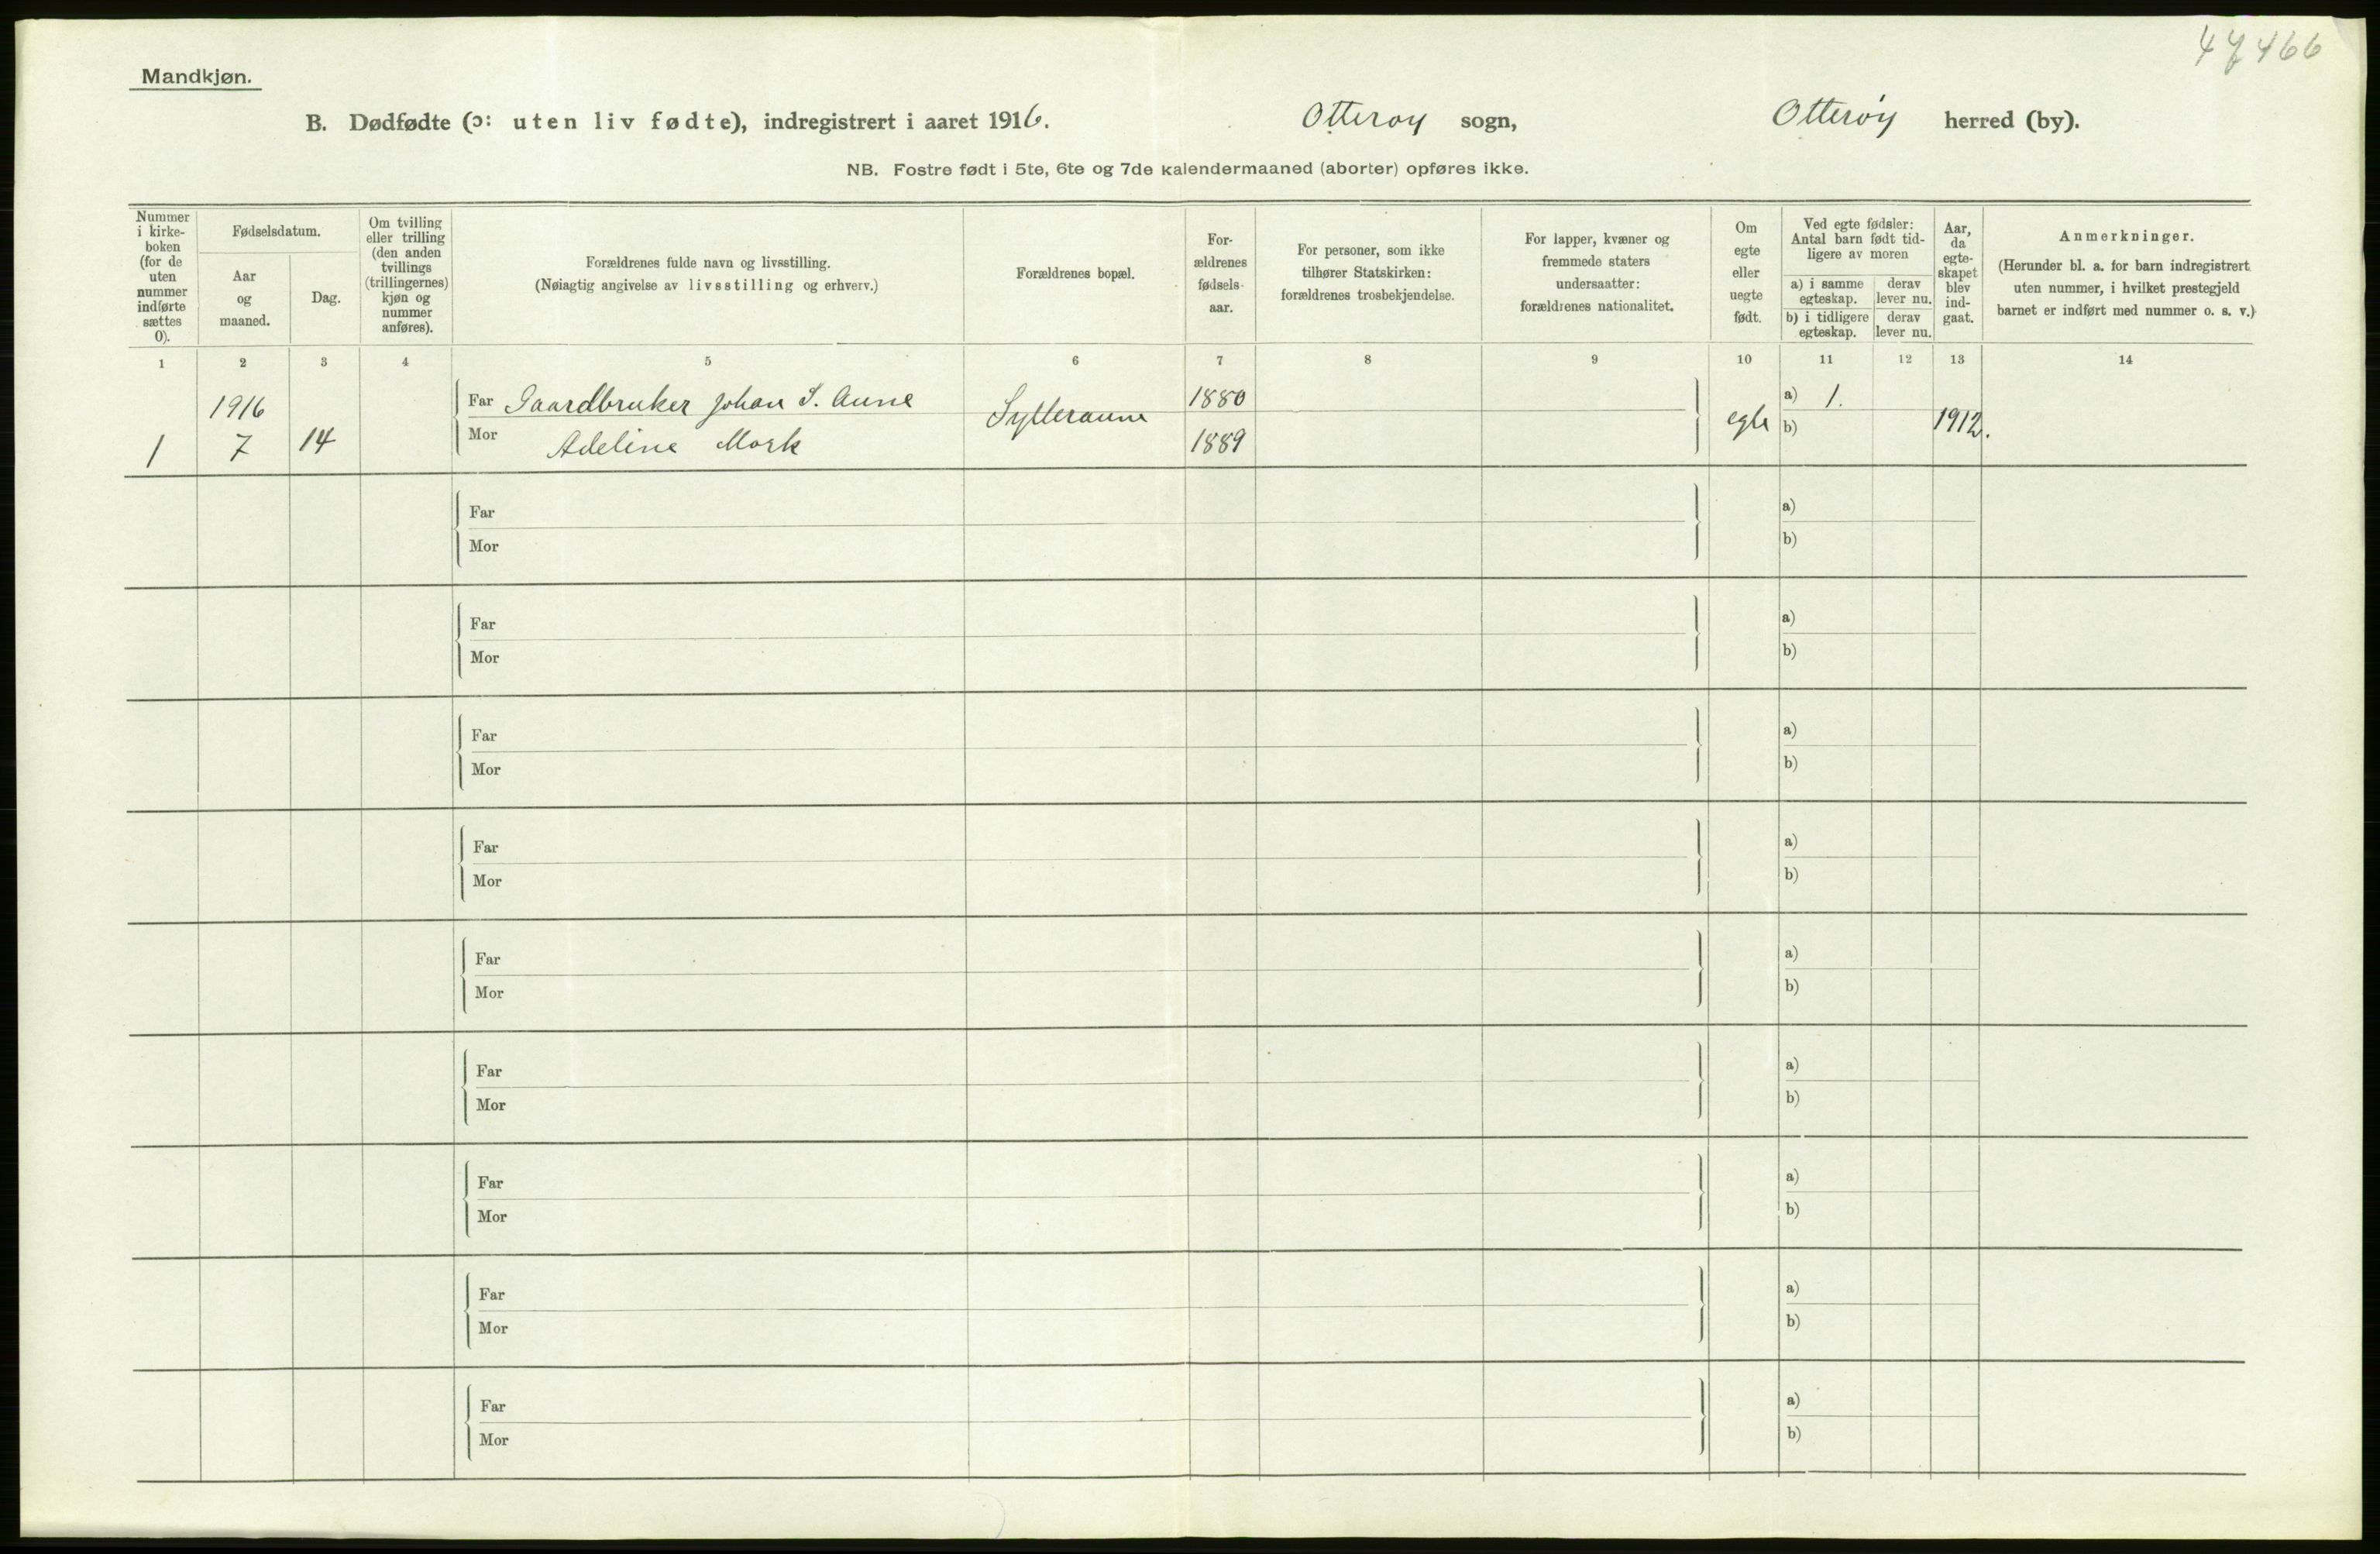 47466
Mandkjøn.
B. Dødfødte (ɔ: uten liv fødte), indregistrert i aaret 1916. Otterøy sogn, Otterøy herred (by).
NB. Fostre født i 5te, 6te og 7de kalendermaaned (aborter) opføres ikke.
Nummer
i kirke-
boken
(for de
uten
nummer
indførte
sættes
0).
Fødselsdatum.
Aar
og
maaned.
Dag.
Om tvilling
eller trilling
(den anden
tvillings
(trillingernes)
kjøn og
nummer
anføres).
Forældrenes fulde navn og livsstilling.
(Nøiagtig angivelse av livsstilling og erhverv.)
Forældrenes bopæl.
For-
ældrenes
fødsels-
aar.
For personer, som ikke
tilhører Statskirken:
forældrenes trosbekjendelse.
For lapper, kvæner og
fremmede staters
undersaatter:
forældrenes nationalitet.
Om
egte
eller
uegte
født.
Ved egte fødsler:
Antal barn født tid-
ligere av moren
a) i samme
egteskap.
derav
lever nu.
b) i tidligere
egteskap.
derav
lever nu.
Aar,
da
egte-
skapet
blev
ind-
gaat.
Anmerkninger.
(Herunder bl. a. for barn indregistrert
uten nummer, i hvilket prestegjeld
barnet er indført med nummer o. s. v.)
1 2 3 4 5 6 7 8 9 10 11 12 13 14
1916 Far Gaardbruker Johan S. Aune Sylteraune 1880 egte a) 1. 1912.
1 7 14 Mor Adeline Mork 1889 b)
Far a)
Mor b)
Far a)
Mor b)
Far a)
Mor b)
Far a)
Mor b)
Far a)
Mor b)
Far a)
Mor b)
Far a)
Mor b)
Far a)
Mor b)
Far a)
Mor b)